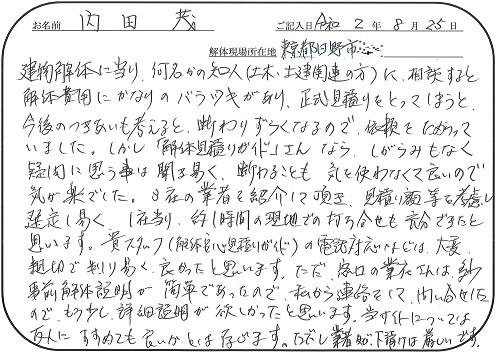 お名前 内田 茂 ご記入日 令和 2 年 8 月 25 日
解体現場所在地 東京都日野市
建物解体に当り、何名かの知人(土木・土建関連の方)に、相談すると
解体費用にかなりのバラツキがあり、正式見積りをとってしまうと、
今後のつきあいも考えると、断わりずらくなるので、依頼をためらって
いました。しかし「解体見積りガイド」さんなら、しがらみもなく
疑問に思う事は聞き易く、断わることも気を使わなくて良いので
気が楽でした。3社の業者を紹介して頂き、見積り額等を考慮し
選定し易く、1社当り、約1時間の現地での打ち合せも充分できたと
思います。貴スタッフ(解体安心見積りガイド)の電話対応などは、大変
親切で判り易く、良かったと思います。ただ、窓口の業者さんは、多少
事前解体説明が簡単であったので、私から連絡をして、問い合せた
ので、もう少し、詳細説明が欲しかったと思います。当サイトについては
友人にすすめても良いかとは存じます。ただし業者如、下請けは厳しいです。